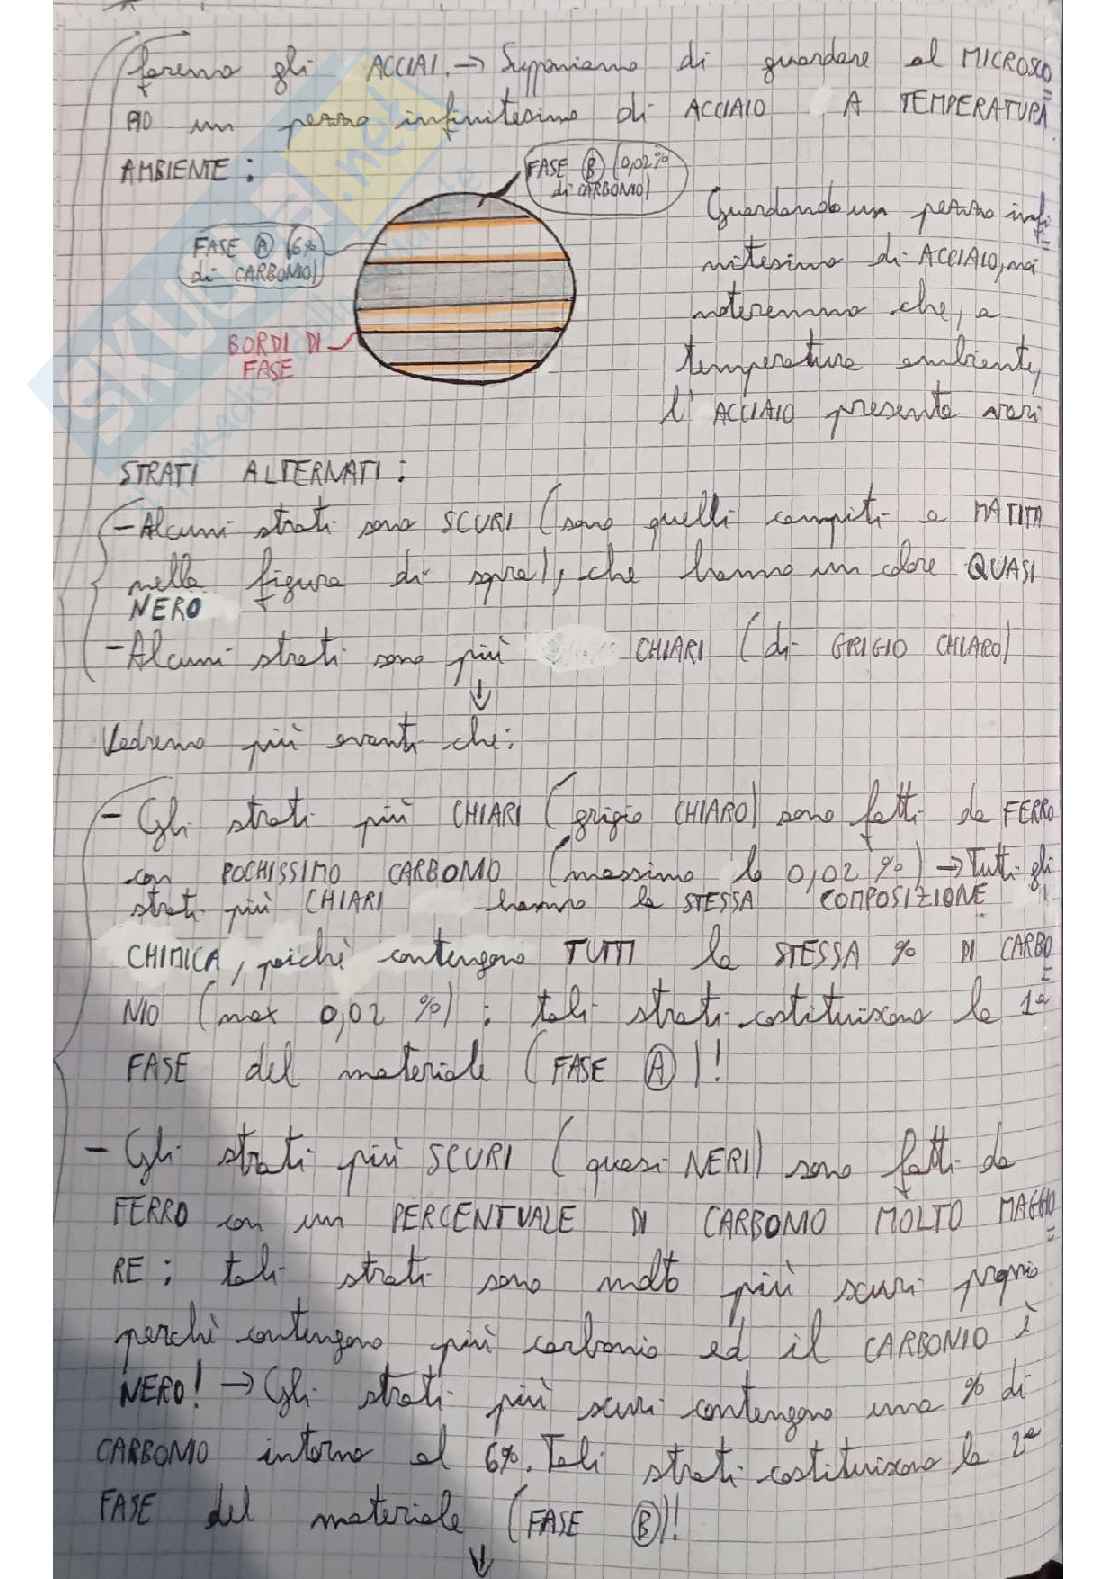 faremo gli ACCIAI. → Supponiamo di guardare al MICROSCO
PIO un pezzo infinitesimo di ACCIAIO A TEMPERATURA
AMBIENTE :
FASE B (0,02 %
di CARBONIO)
FASE A (6%
di CARBONIO)
BORDI DI
FASE
Guardando un pezzo infi
nitesimo di ACCIAIO, noi
noteremmo che, a
temperatura ambiente,
l'ACCIAIO presenta vari
STRATI ALTERNATI :
- Alcuni strati sono SCURI (sono quelli compiti a MATITA
nella figura di sopra), che hanno un colore QUASI
NERO
- Alcuni strati sono più CHIARI (di GRIGIO CHIARO)
↓
Vedremo più avanti che:
- Gli strati più CHIARI (grigio CHIARO) sono fatti da FERRO
con POCHISSIMO CARBONIO (massimo lo 0,02 %) → Tutti gli
strati più CHIARI hanno la STESSA COMPOSIZIONE
CHIMICA, poichè contengono TUTTI la STESSA % DI CARBO
NIO (max 0,02 %) : tali strati costituiscono la 1ª
FASE del materiale (FASE A)!
- Gli strati più SCURI (quasi NERI) sono fatti da
FERRO con un PERCENTUALE DI CARBONIO MOLTO MAGGIO
RE : tali strati sono molto più scuri proprio
perchè contengono più carbonio ed il CARBONIO è
NERO! → Gli strati più scuri contengono una % di
CARBONIO intorno al 6%. Tali strati costituiscono la 2ª
FASE del materiale (FASE B)!
↓
SKUOLA.net